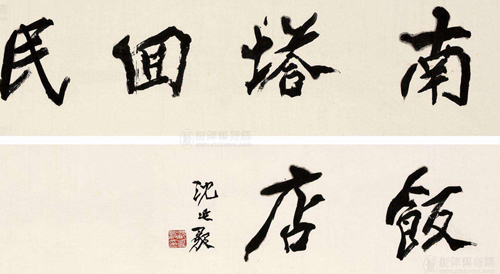 南塔回民
飯店
沈延毅